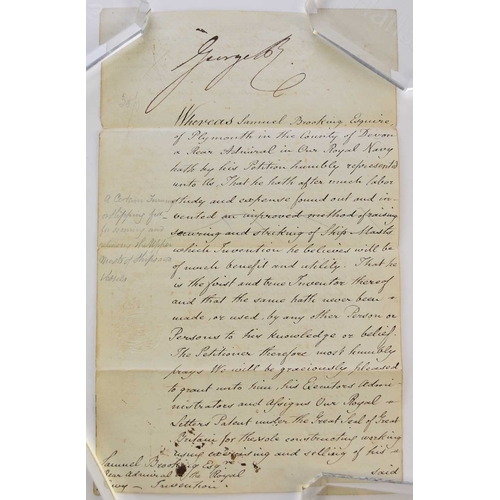 George R
Whereas Samuel Brooking, Esquire,
of Plymouth in the County of Devon
a Rear Admiral in Our Royal Navy
hath by his Petition humbly represented
unto Us, That he hath after much labor
study and expense found out and in-
vented an improved method of raising
securing and striking of Ship Masts
which Invention he believes will be
of much benefit and utility. That he
is the first and true Inventor thereof
and that the same hath never been
made, or used, by any other Person or
Persons to his knowledge or belief.
The Petitioner therefore most humbly
prays We will be graciously pleased
to grant unto him, his Executors Admi-
nistrators and Assigns Our Royal
Letters Patent under the Great Seal of Great
Britain for the sole constructing working
using exercising and selling of his
said
A Certain
for securing and
the Upper
Masts of Ships and
Vessels
Samuel Brooking Esqr.
Rear Admiral of the Royal
Navy - Invention